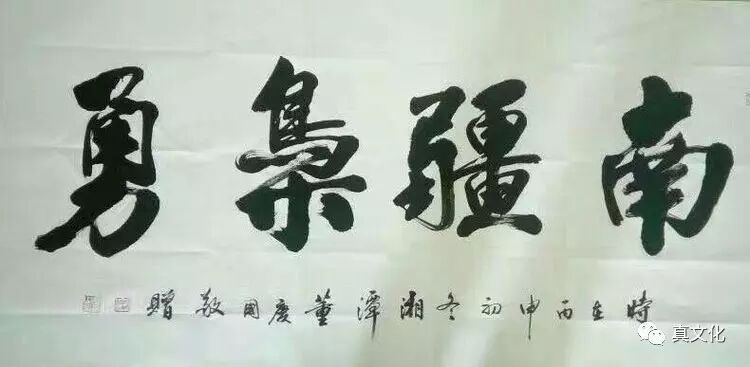 南疆枭勇
时在丙申初冬湘潭董度国敬赠
真文化